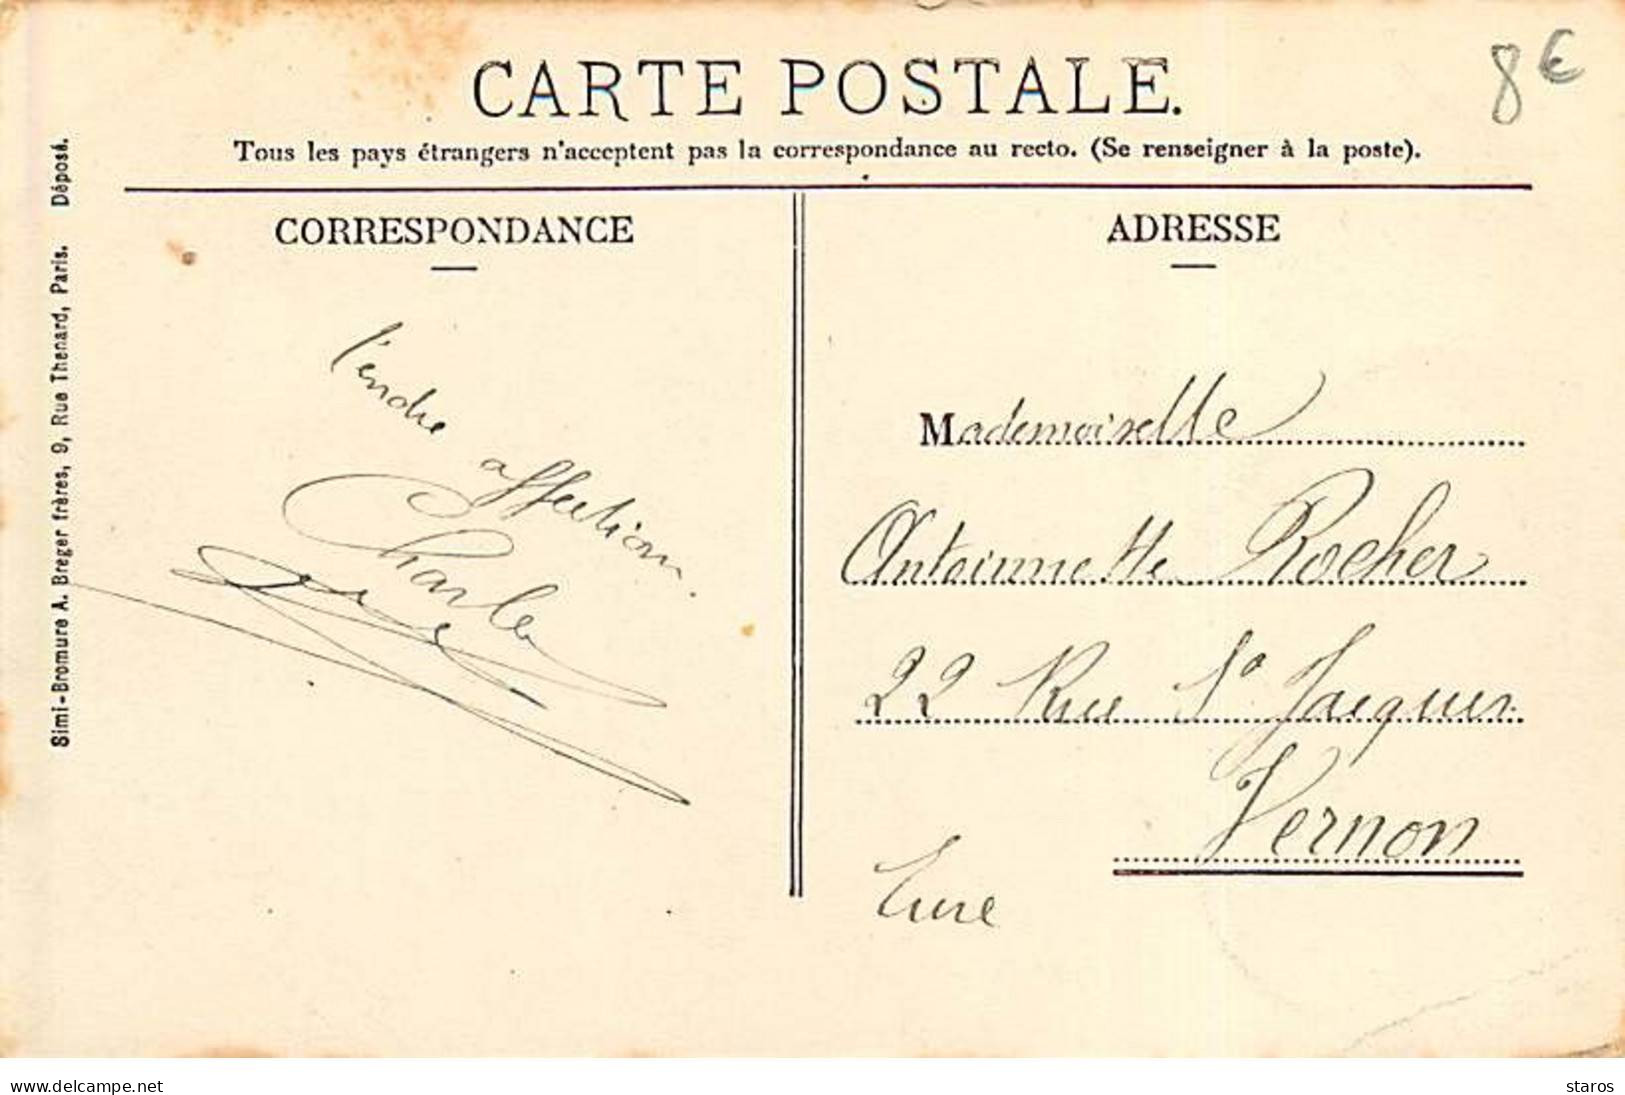 8 €
CARTE POSTALE.
Tous les pays étrangers n'acceptent pas la correspondance au recto. (Se renseigner à la poste).
CORRESPONDANCE
Tendre
affection
Charles
ADRESSE
Mademoiselle
Antoinette Rocher
22 Rue St Jacques
Vernon
Eure
Simi-Bromure A. Breger frères, 9, Rue Thenard, Paris. Déposé.
www.delcampe.net
staros